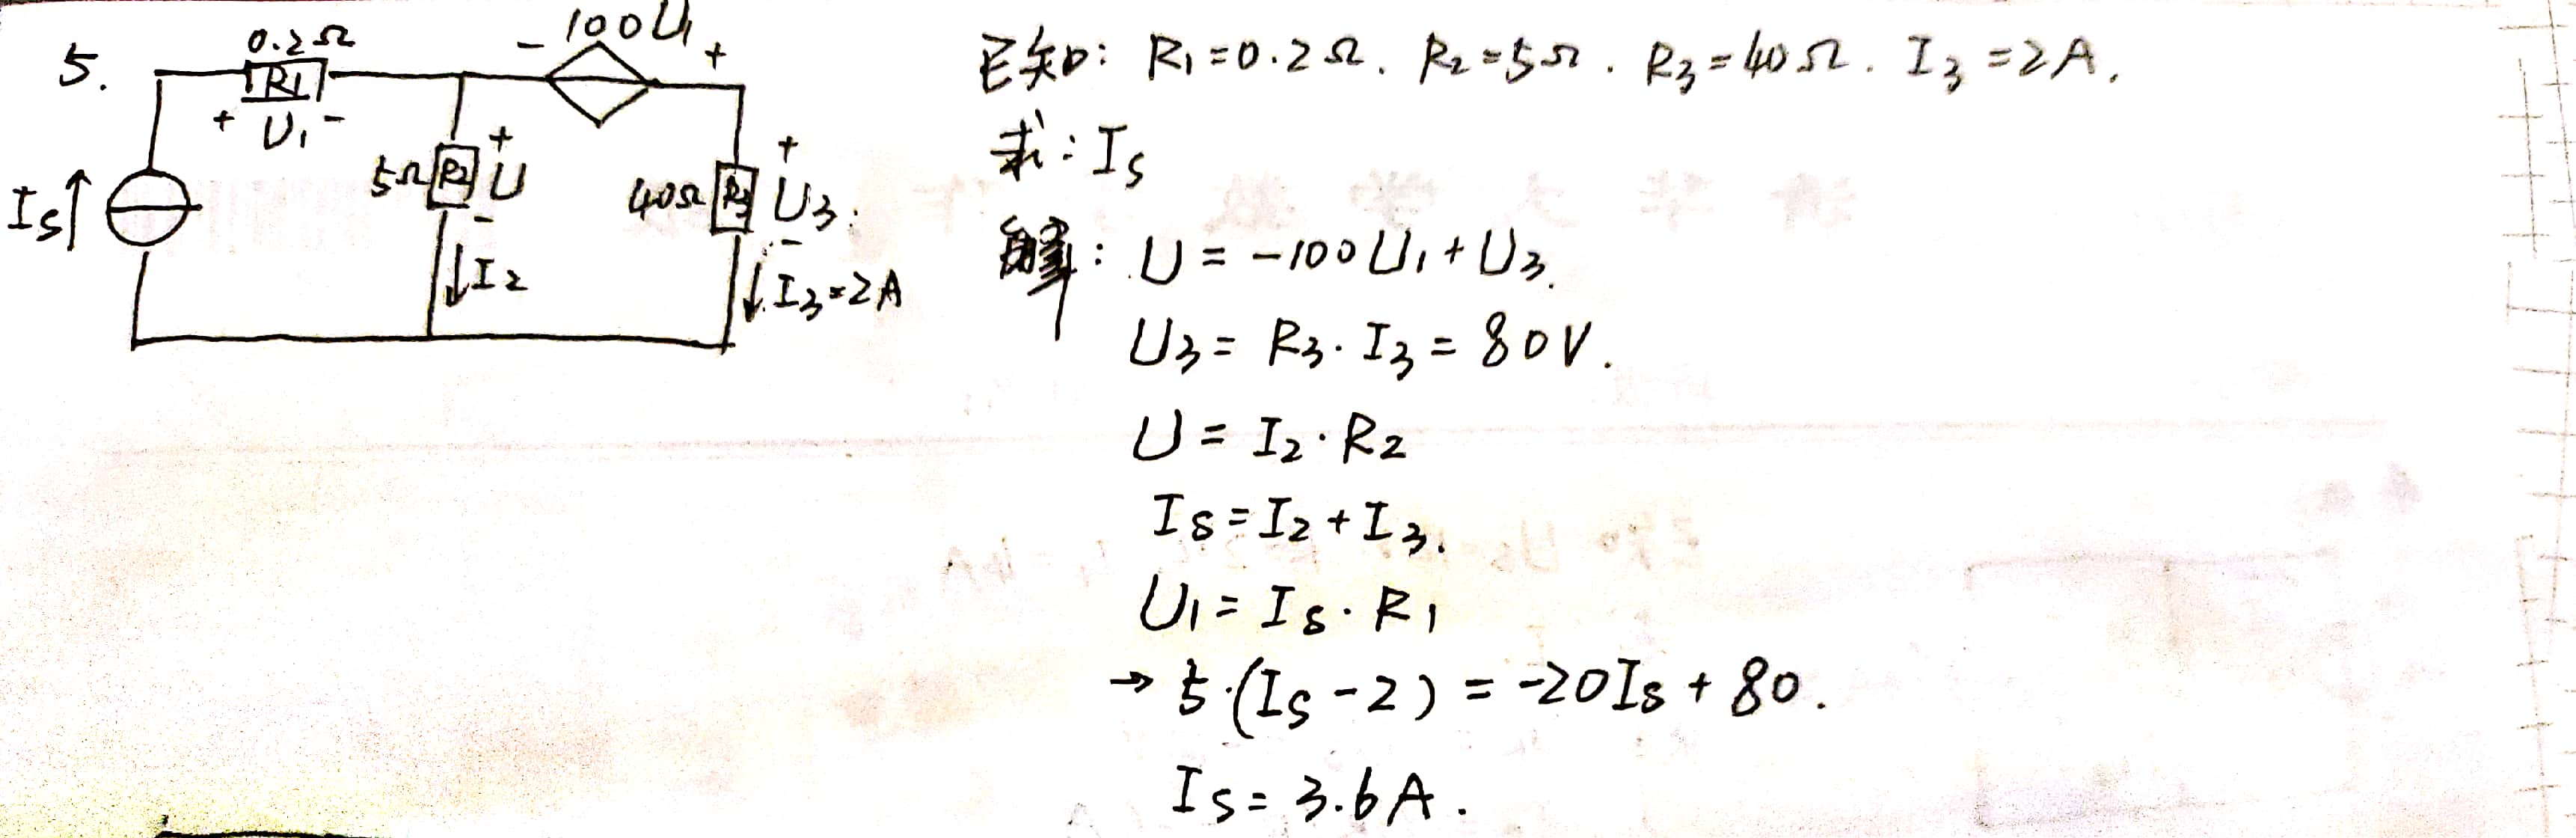 5.
0.2Ω
R1
+ U1 -
- 100U1 +
Is↑
5Ω
R2
+
U
-
↓I2
40Ω
R3
+
U3
-
↓I3=2A
已知: R1=0.2Ω. R2=5Ω. R3=40Ω. I3=2A.
求: Is
解: U = -100U1 + U3.
U3 = R3·I3 = 80V.
U = I2·R2
Is = I2 + I3.
U1 = Is·R1
→ 5·(Is-2) = -20Is + 80.
Is = 3.6A.